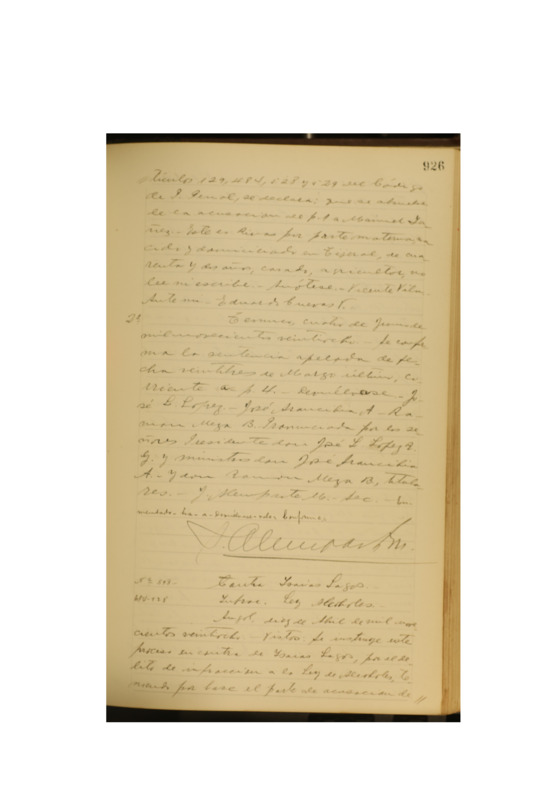 926
tículos 129, 484, 528 y 529 del Código
de P. Penal, se declara: que se absuelve
de la acusacion de f. 1 a Manuel
Este es Rivas por parte materna,
cido y domiciliado en de cua
renta y dos años, casado, agricultor, no
lee ni escribe. Anótese. Vicente
Ante mi. Eduardo Cuevas V.
21
Temuco, cuatro de Junio de
mil novecientos veintiocho. Se confir
ma la sentencia apelada de fe
cha veintitres de Marzo último, es
crita a f. Devuélvase. Jo
sé L. Lopez. José Arancibia A. Ra
mon Mega B. Pronunciada por los se
ñores Presidente don José L. Lopez
y ministros don José Arancibia
A. y don Ramon Mega B, titula
res. J. Sec.
Contra Isaias Lagos
Infrac. Ley Alcoholes
Angol, diez de Abril de mil nove
cientos veintiocho. Vistos: Se instruye este
proceso en contra de Isaias Lagos, por el de
lito de infraccion a la Ley de Alcoholes, to
mando por base el parte de acusacion de